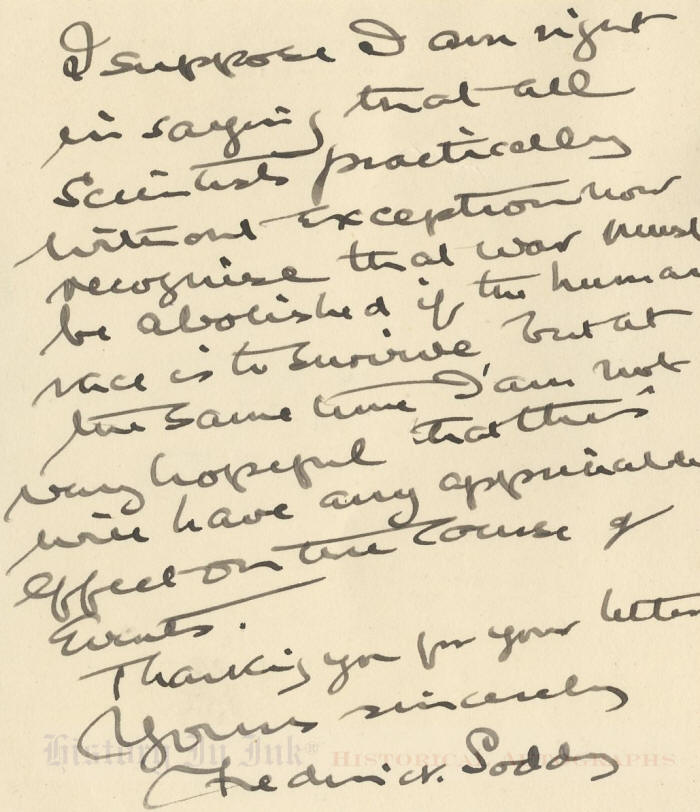 I suppose I am right
in saying that all
Scientists practically
without exception now
recognise that war must
be abolished if the human
race is to survive, but at
the same time I am not
very hopeful that this
will have any appreciable
effect on the course of
Events.
Thanking you for your letter
Yours sincerely
Frederick Soddy
History In Ink® Historical Autographs